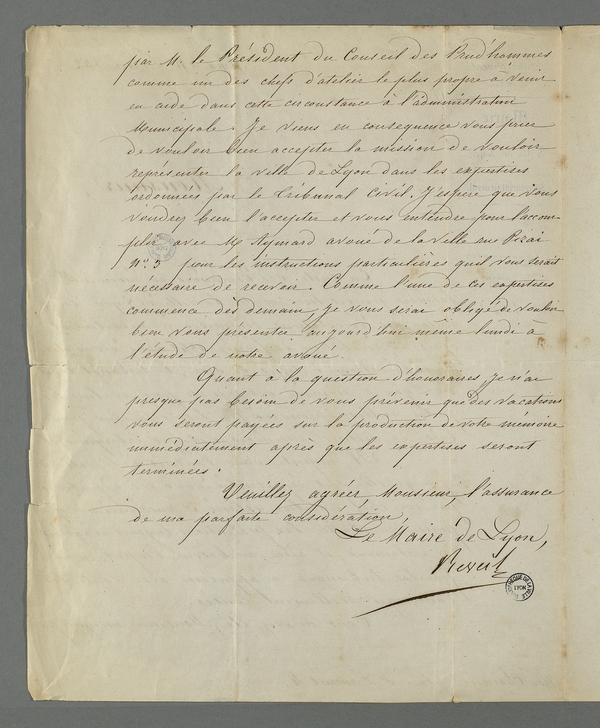 par M. le Président du Conseil des Prud'hommes
comme un des chefs d'atelier le plus propre à venir
en aide dans cette circonstance à l'administration
Municipale. Je viens en conséquence vous prier
de vouloir bien accepter la mission de vouloir
représenter la ville de Lyon dans les expertises
ordonnées par le Tribunal Civil. J'espère que vous
voudrez bien l'accepter et vous entendre pour l'accom-
plir avec Me Aymard avoué de la ville rue Pizai
No. 3 pour les instructions particulières qu'il vous serait
nécessaire de recevoir. Comme l'une de ces expertises
commence dès demain, je vous serai obligé de vouloir
bien vous présenter aujourd'hui même lundi à
l'étude de notre avoué.
Quant à la question d'honoraires, je n'ai
presque pas besoin de vous prévenir que des vacations
vous seront payées sur la production de votre mémoire
immédiatement après que les expertises seront
terminées.
Veuillez agréer, Monsieur, l'assurance
de ma parfaite considération,
Le Maire de Lyon,
Reveil
LYON